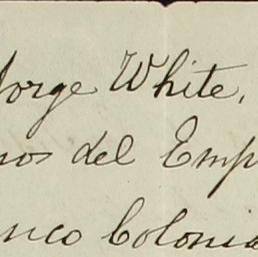 Jorge White,
nos del Emp
nco Colonia